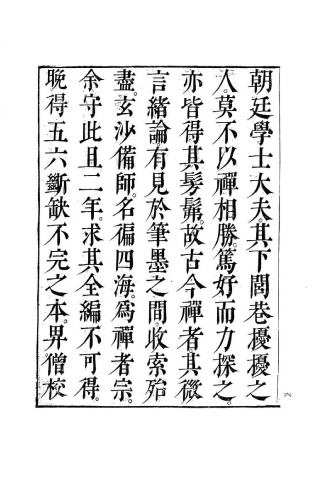 朝廷學士大夫。其下閭巷擾擾之
人。莫不以禪相勝。篤好而力探之。
亦皆得其髣髴。故古今禪者其微
言緒論有見於筆墨之間收索殆
盡。玄沙備師。名徧四海。爲禪者宗。
余守此且二年。求其全編不可得。
晚得五六斷缺不完之本。畀僧校
六